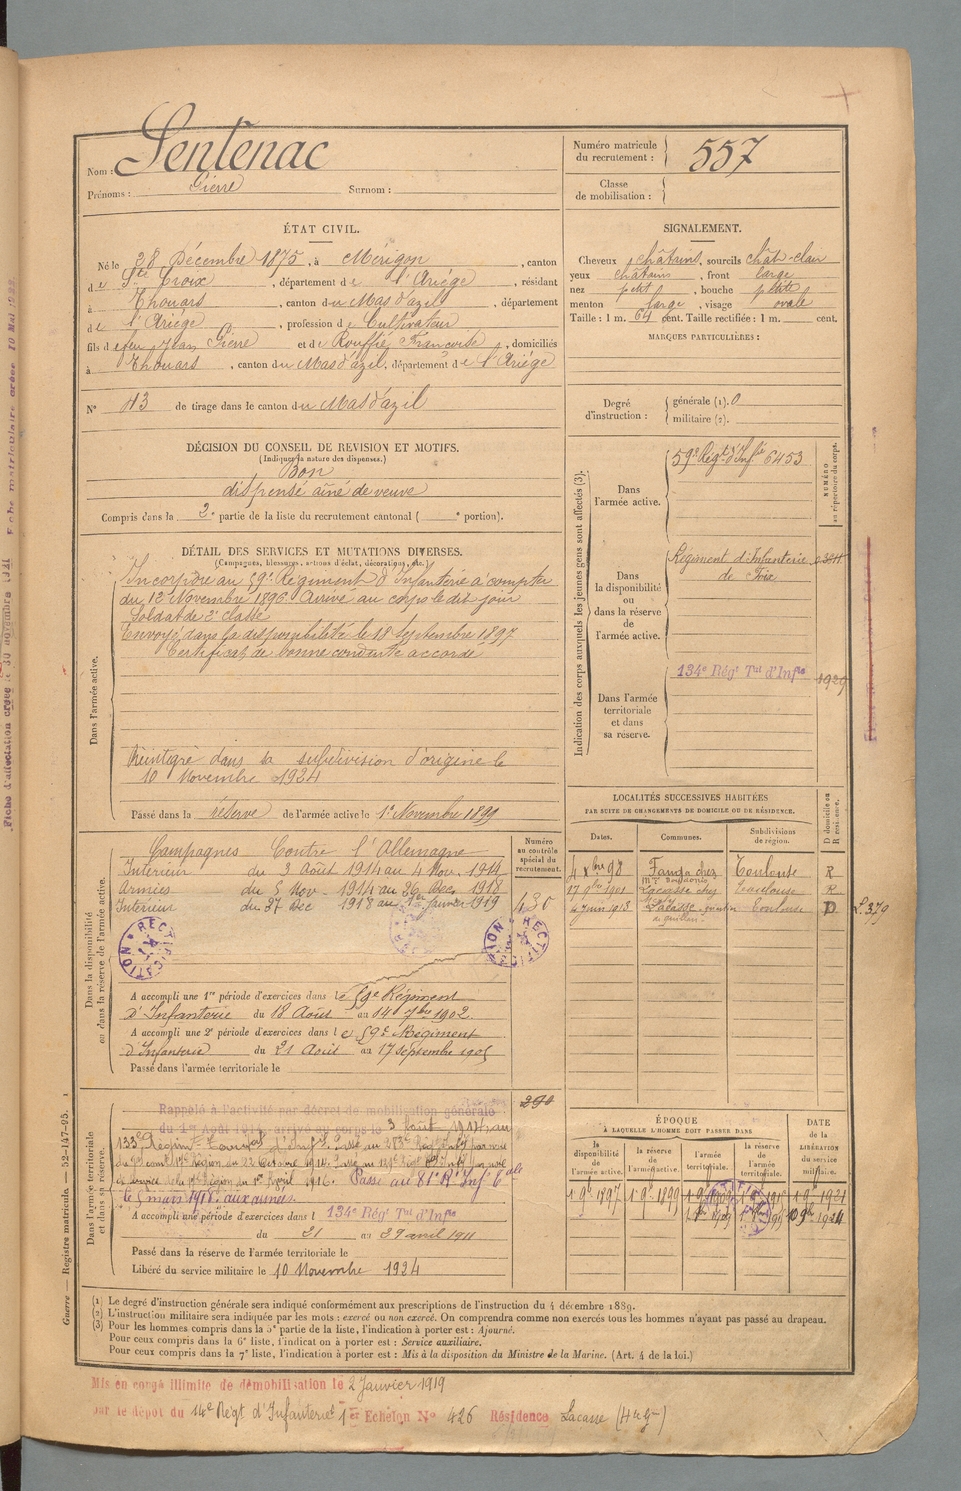 Nom : Sentenac
Prénoms : Pierre Surnom :
Numéro matricule du recrutement : 557
Classe de mobilisation :
ÉTAT CIVIL.
Né le 28 Décembre 1875, à Mérigon, canton
de Ste Croix, département de l'Ariège, résidant
à Thouars, canton du Mas d'azil, département
de l'Ariège, profession de Cultivateur
fils de feu Jean Pierre et de Rouffié Françoise, domiciliés
à Thouars, canton du Mas d'azil, département de l'Ariège
N° 43 de tirage dans le canton du Mas d'azil
SIGNALEMENT.
Cheveux châtains, sourcils chât-clair
yeux châtains, front large
nez petit, bouche petite
menton large, visage ovale
Taille : 1 m. 64 cent. Taille rectifiée : 1 m. cent.
MARQUES PARTICULIÈRES :
Degré d'instruction : générale (1). 0
militaire (2).
DÉCISION DU CONSEIL DE REVISION ET MOTIFS.
(Indiquer la nature des dispenses.)
Bon
dispensé aîné de veuve
Compris dans la 2e partie de la liste du recrutement cantonal ( e portion).
DÉTAIL DES SERVICES ET MUTATIONS DIVERSES.
(Campagnes, blessures, actions d'éclat, décorations, etc.)
Dans l'armée active.
Incorporé au 59e Régiment d'Infanterie à compter
du 12 Novembre 1896. Arrivé au corps le dit jour
Soldat de 2e classe
Envoyé dans la disponibilité le 18 Septembre 1897
Certificat de bonne conduite accordé
Réintégré dans sa subdivision d'origine le
10 Novembre 1924
Passé dans la réserve de l'armée active le 1er Novembre 1899
Indication des corps auxquels les jeunes gens sont affectés (3).
NUMÉRO au répertoire du corps.
Dans l'armée active.
59e Régt d'Infie 6453
Dans la disponibilité ou dans la réserve de l'armée active.
Régiment d'Infanterie
de Foix
Dans l'armée territoriale et dans sa réserve.
134e Régt Tal d'Infie 1929
Dans la disponibilité ou dans la réserve de l'armée active.
Numéro au contrôle spécial du recrutement.
Campagnes Contre l'Allemagne
Intérieur du 3 Août 1914 au 4 Nov. 1914
Armées du 5 Nov - 1914 au 26 Dec 1918
Intérieur du 27 Dec 1918 au Janvier 1919
430
RECTIFICATION
RECTIFICATION
A accompli une 1re période d'exercices dans le 59e Régiment
d'Infanterie du 18 Août au 14 7bre 1902
A accompli une 2e période d'exercices dans le 59e Régiment
d'Infanterie du 21 Août au 17 Septembre 1905
Passé dans l'armée territoriale le
LOCALITÉS SUCCESSIVES HABITÉES
PAR SUITE DE CHANGEMENTS DE DOMICILE OU DE RÉSIDENCE.
Dates. Communes. Subdivisions de région. D domicile ou R résidence.
4 Xbre 98 Fanga chez Toulouse R
17 9bre 1901 Lacasse chez Toulouse R
4 Juin 1913 Lacasse Toulouse D
Dans l'armée territoriale et dans sa réserve.
290
Rappelé à l'activité par décret de mobilisation générale
du 1er Août 1914, arrivé au corps le 3 Août 1914, au
Passé au 81e Rt Inf
le 5 mars 1918. aux armées.
A accompli une période d'exercices dans l 134e Régt Tal d'Infie
du 21 au 29 avril 1911
Passé dans la réserve de l'armée territoriale le
Libéré du service militaire le 10 Novembre 1924
ÉPOQUE
À LAQUELLE L'HOMME DOIT PASSER DANS
la disponibilité de l'armée active. la réserve de l'armée active. l'armée territoriale. la réserve de l'armée territoriale.
DATE de la LIBÉRATION du service militaire.
1 9b 1897 1 9b 1899 1 9b 1921
10 9b 1924
(1) Le degré d'instruction générale sera indiqué conformément aux prescriptions de l'instruction du 4 décembre 1889.
(2) L'instruction militaire sera indiquée par les mots : exercé ou non exercé. On comprendra comme non exercés tous les hommes n'ayant pas passé au drapeau.
(3) Pour les hommes compris dans la 5e partie de la liste, l'indication à porter est : Ajourné.
Pour ceux compris dans la 6e liste, l'indication à porter est : Service auxiliaire.
Pour ceux compris dans la 7e liste, l'indication à porter est : Mis à la disposition du Ministre de la Marine. (Art. 4 de la loi.)
Guerre — Registre matricule. — 52-147-95.
Mis en congé illimité de démobilisation le 2 Janvier 1919
par le dépôt du 14e Régt d'Infanterie 1er Echelon N° 426 Résidence Lacasse